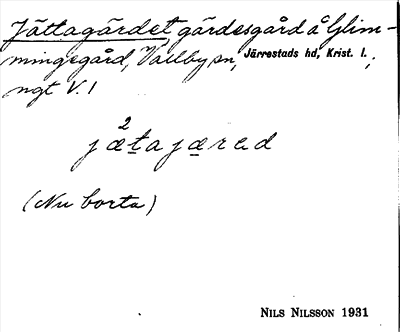 Jättagärdet, gärdesgård å Glim-
mingegård, Vallby sn, Järrestads hd, Krist. l.,
ngt V. l
2
jætajæred
(Nu borta)
NILS NILSSON 1931